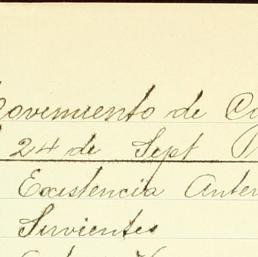 ovimiento de Ca
24 de Sept
Existencia Anter
Sirvientes